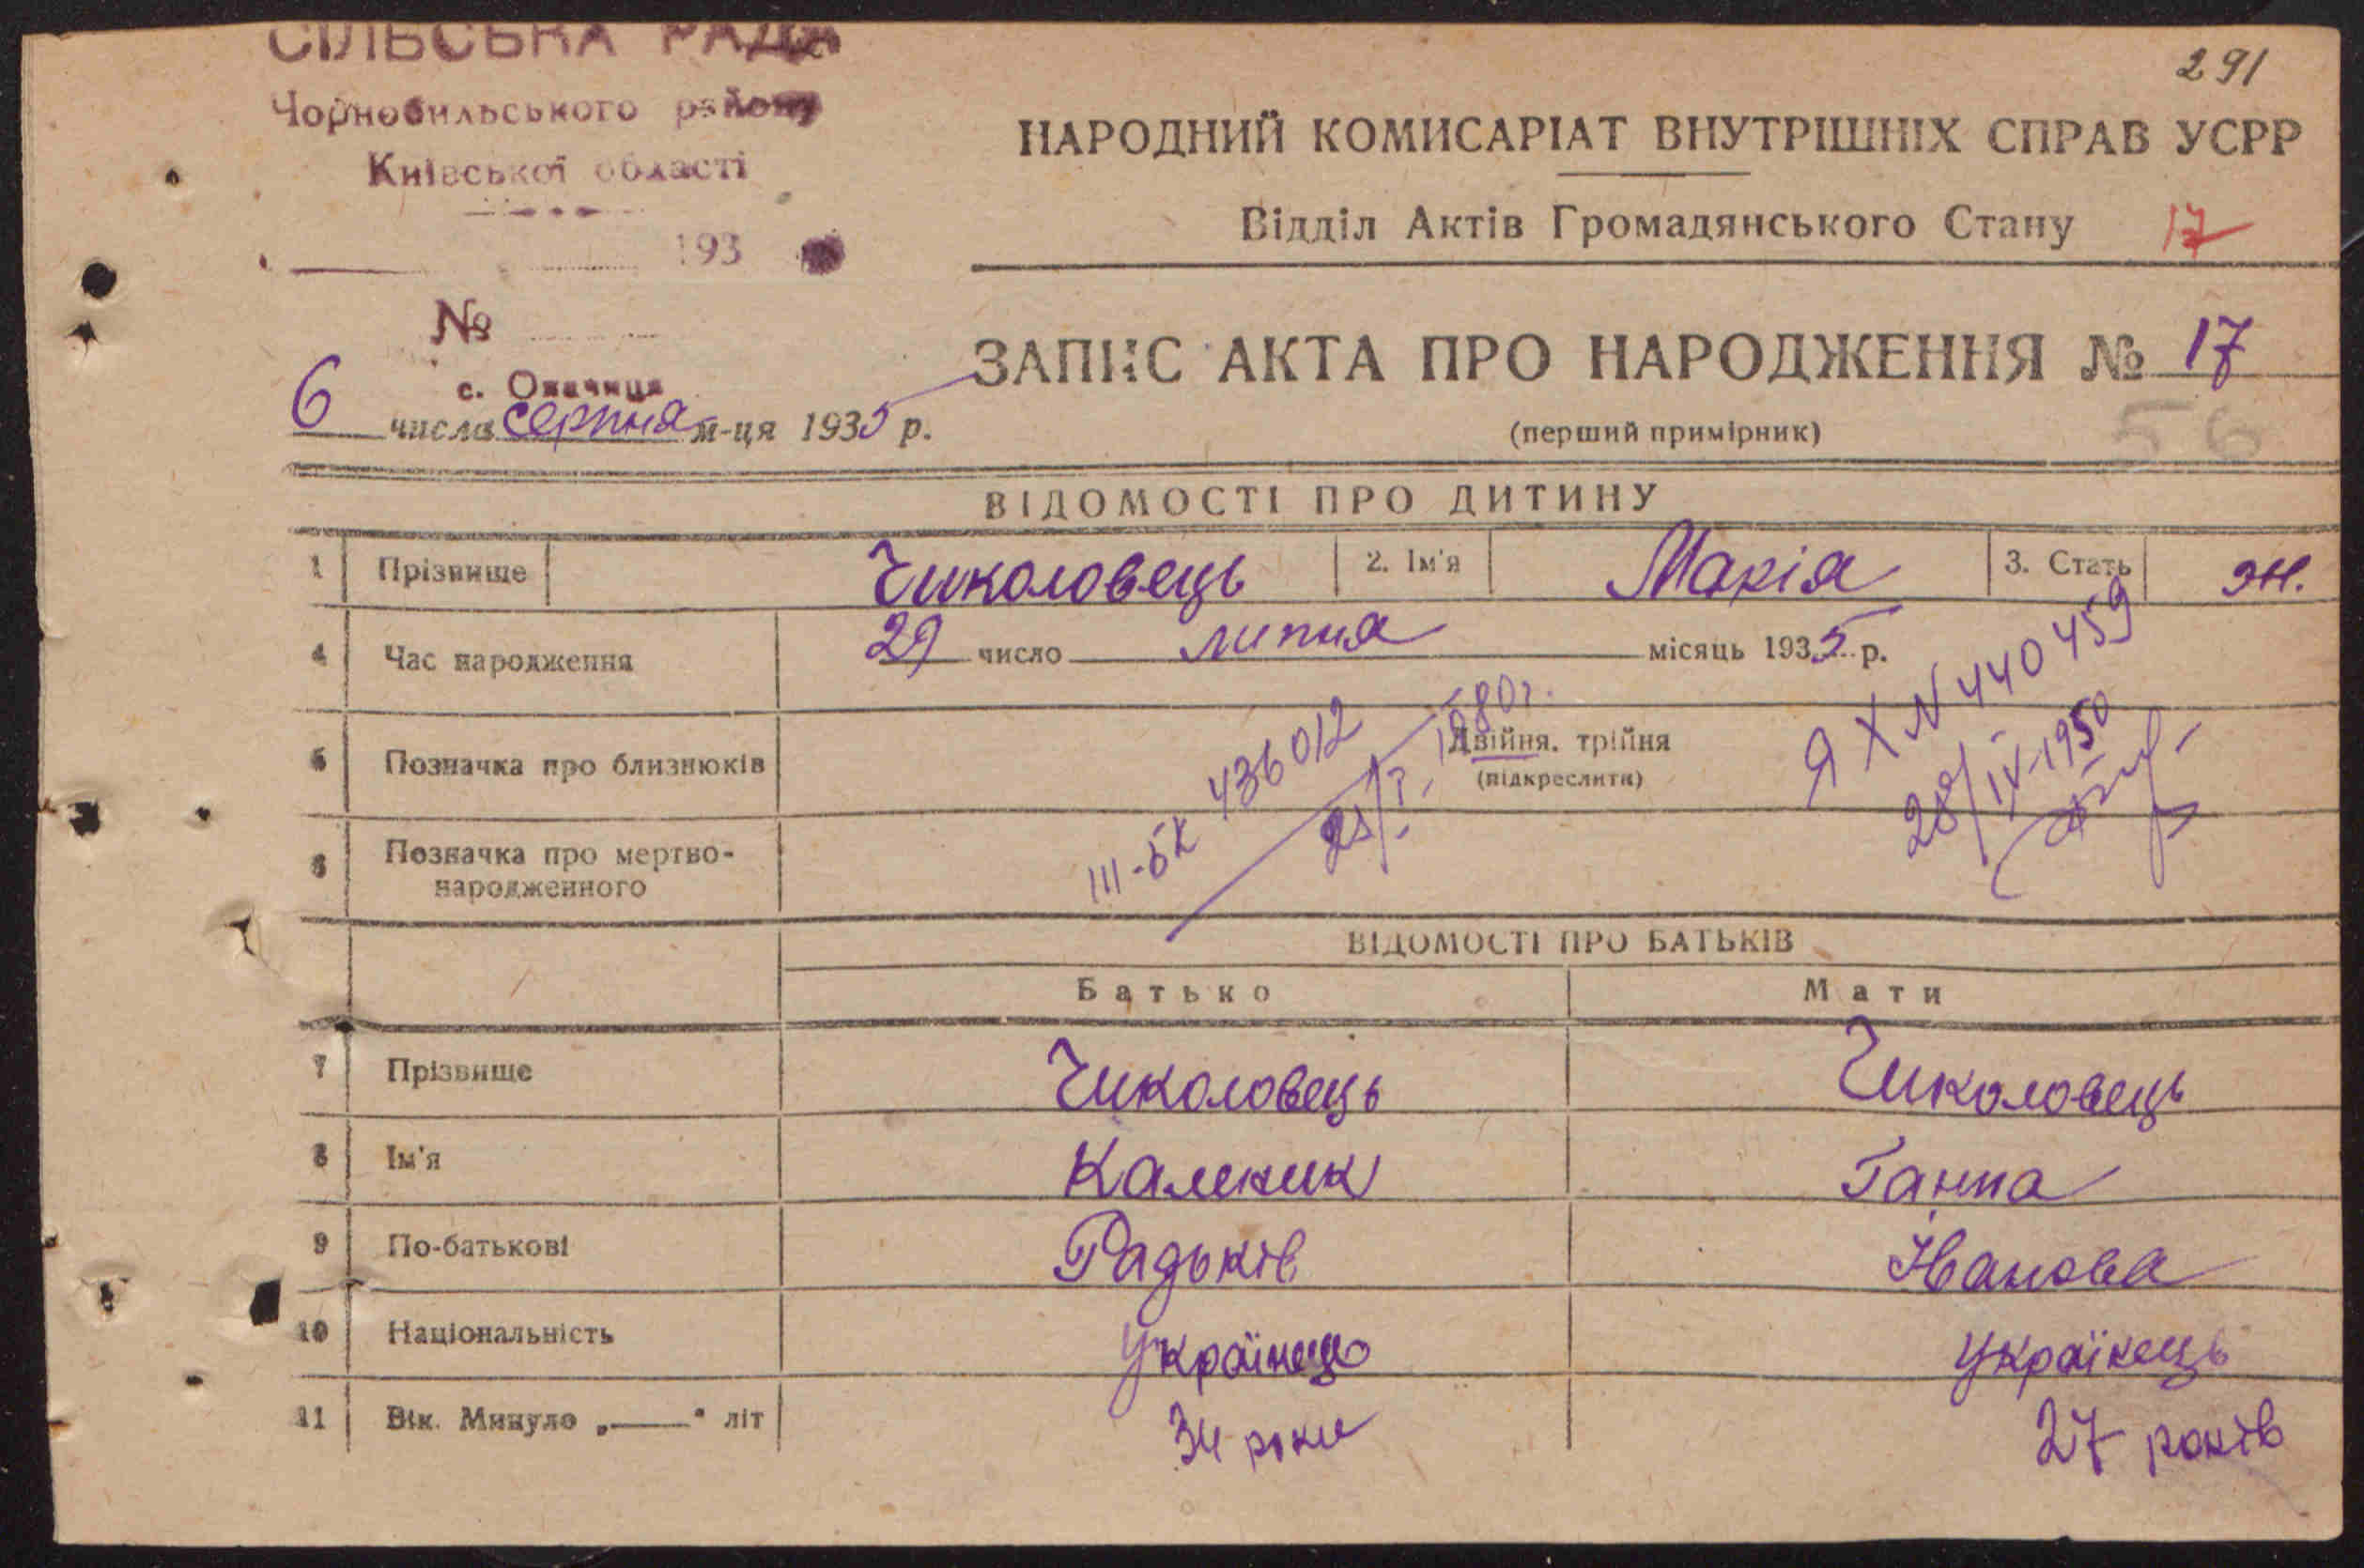 СІЛЬСЬКА РАДА
Чорнобильського району
Київської області
193
№
с. Опачиця
6 числа серпня м-ця 1935 р.
291
НАРОДНИЙ КОМИСАРІАТ ВНУТРІШНІХ СПРАВ УСРР
Відділ Актів Громадянського Стану 17
ЗАПИС АКТА ПРО НАРОДЖЕННЯ № 17
(перший примірник) 56
ВІДОМОСТІ ПРО ДИТИНУ
1 Прізвище Чиколовець 2. Ім'я Марія 3. Стать Ж.
4 Час народження 29 число липня місяць 1935 р.
5 Позначка про близнюків Двійня. трійня
(підкреслити)
6 Позначка про мертво-
народженного
III-БК 436012
1980г.
Я Х N 440459
28/IV-1950
ВІДОМОСТІ ПРО БАТЬКІВ
Батько Мати
7 Прізвище Чиколовець Чиколовець
8 Ім'я Каленик Ганна
9 По-батькові Радьків Іванова
10 Національність Українець Українець
11 Вік. Минуло „——" літ 34 роки 27 років